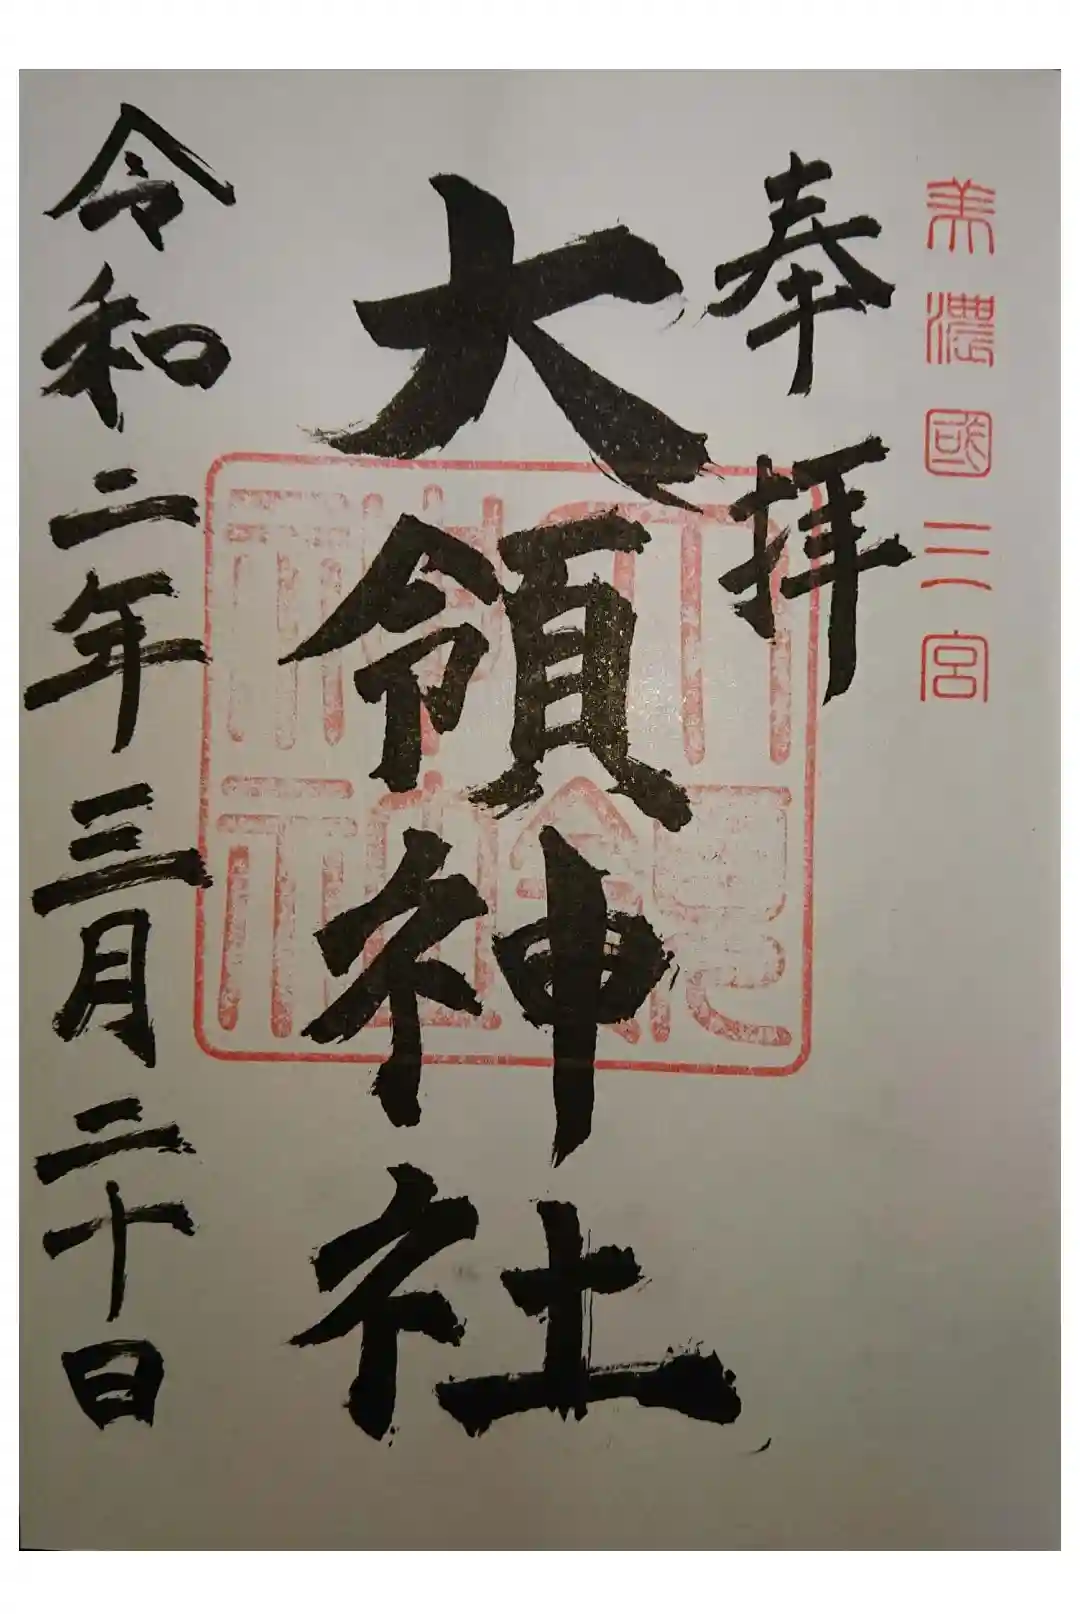 美濃國二宮
奉拝
大領神社
令和二年三月二十日